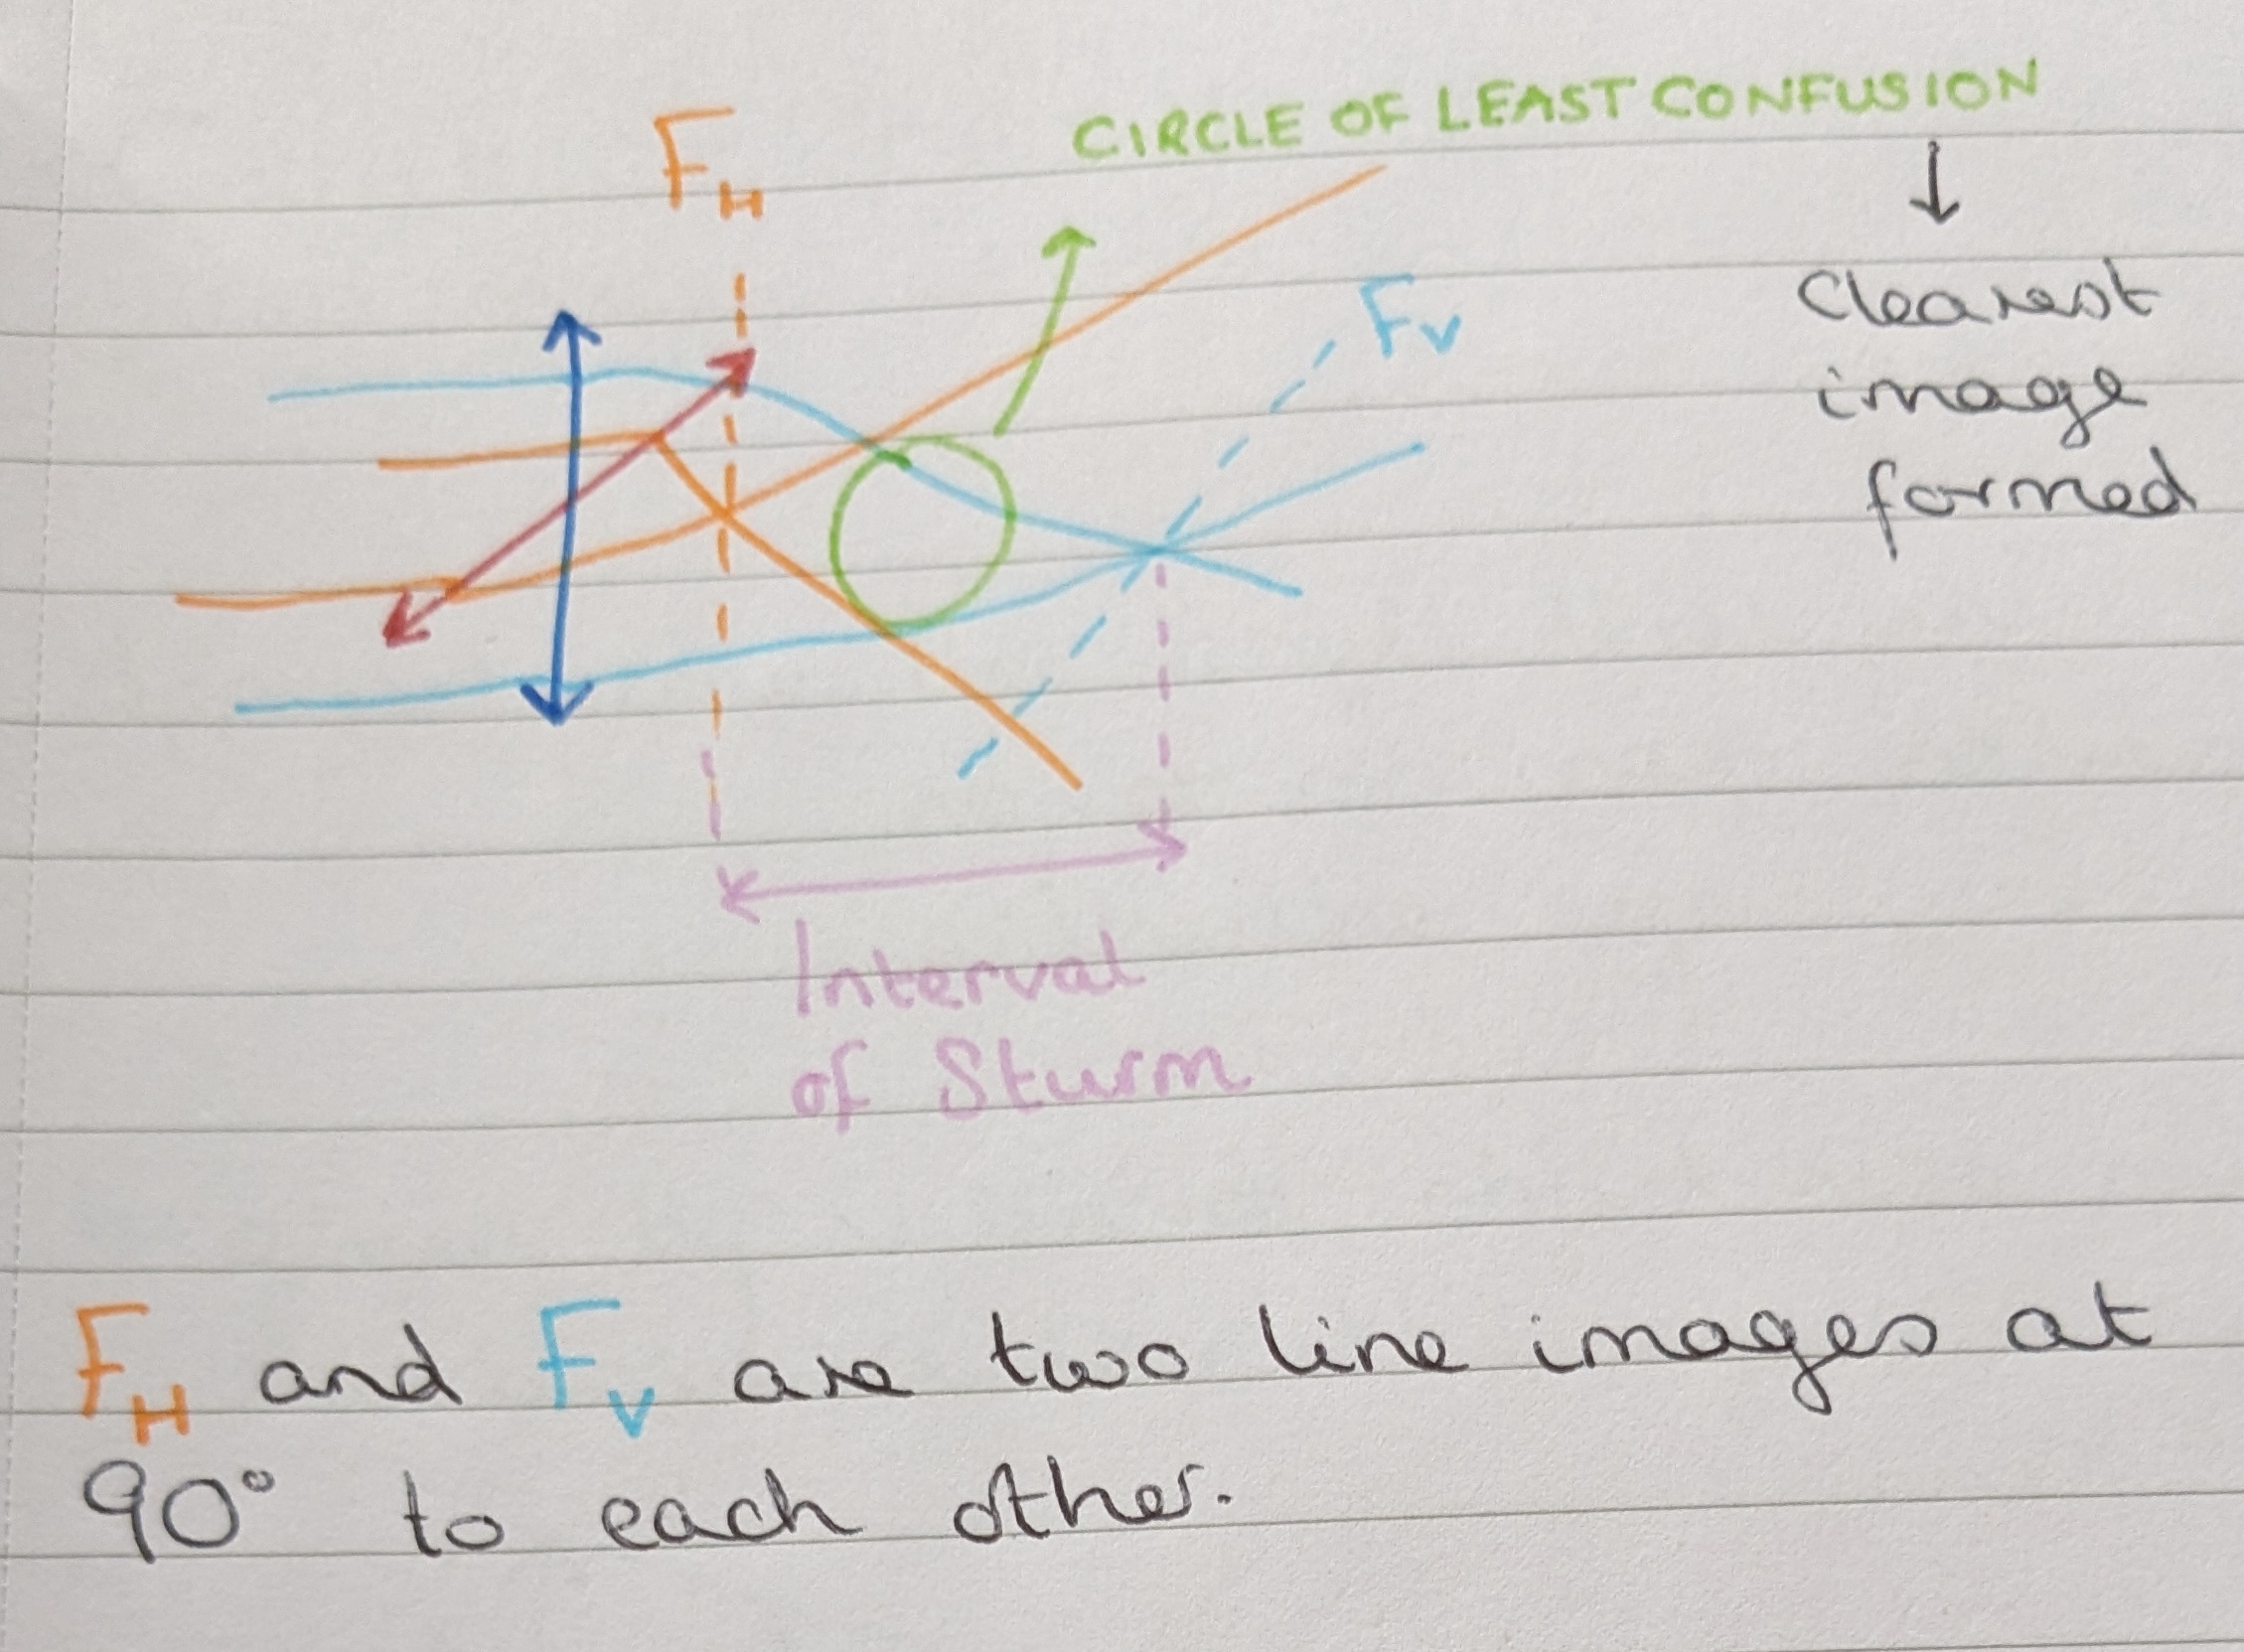 CIRCLE OF LEAST CONFUSION
FH
Clearest
image
formed
Fv
Interval
of Sturm
FH and Fv are two line images at
90° to each other.